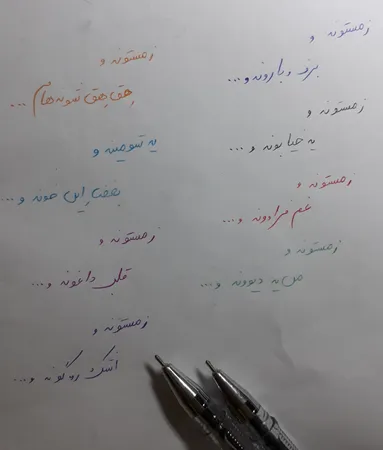 زمستونه و
برف و بارونه و...
زمستونه و
یه خیابونه و...
زمستونه و
غم فراوونه و...
زمستونه و
من یه دیوونه و...
زمستونه و
هق هق شونه هام...
یه نیومیه و
بغض این خونه و...
زمستونه و
قلب داغونه و...
زمستونه و
اشک رو گونه و...